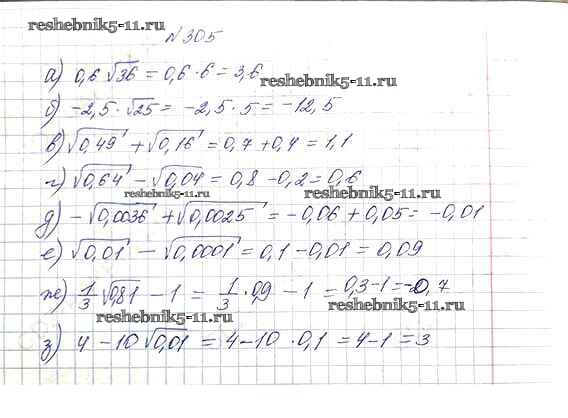 reshebnik5-11.ru
№305
а) 0,6 √36 = 0,6 · 6 = 3,6
reshebnik5-11.ru
б) -2,5 · √25 = -2,5 · 5 = -12,5
в) √0,49 + √0,16 = 0,7 + 0,4 = 1,1
reshebnik5-11.ru
г) √0,64 - √0,04 = 0,8 - 0,2 = 0,6
reshebnik5-11.ru
д) -√0,0036 + √0,0025 = -0,06 + 0,05 = -0,01
е) √0,01 - √0,0001 = 0,1 - 0,01 = 0,09
ж) 1/3 √0,81 - 1 = 1/3 · 0,9 - 1 = 0,3 - 1 = -0,7
reshebnik5-11.ru
reshebnik5-11.ru
з) 4 - 10 √0,01 = 4 - 10 · 0,1 = 4 - 1 = 3